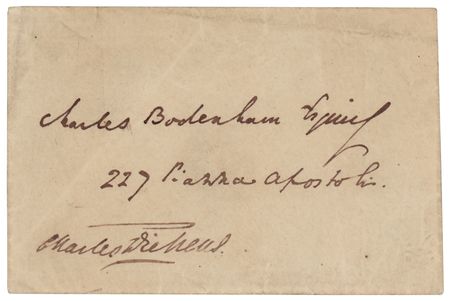 Charles Bodenham Esquire
227 Piazza Apostoli.
Charles Dickens.